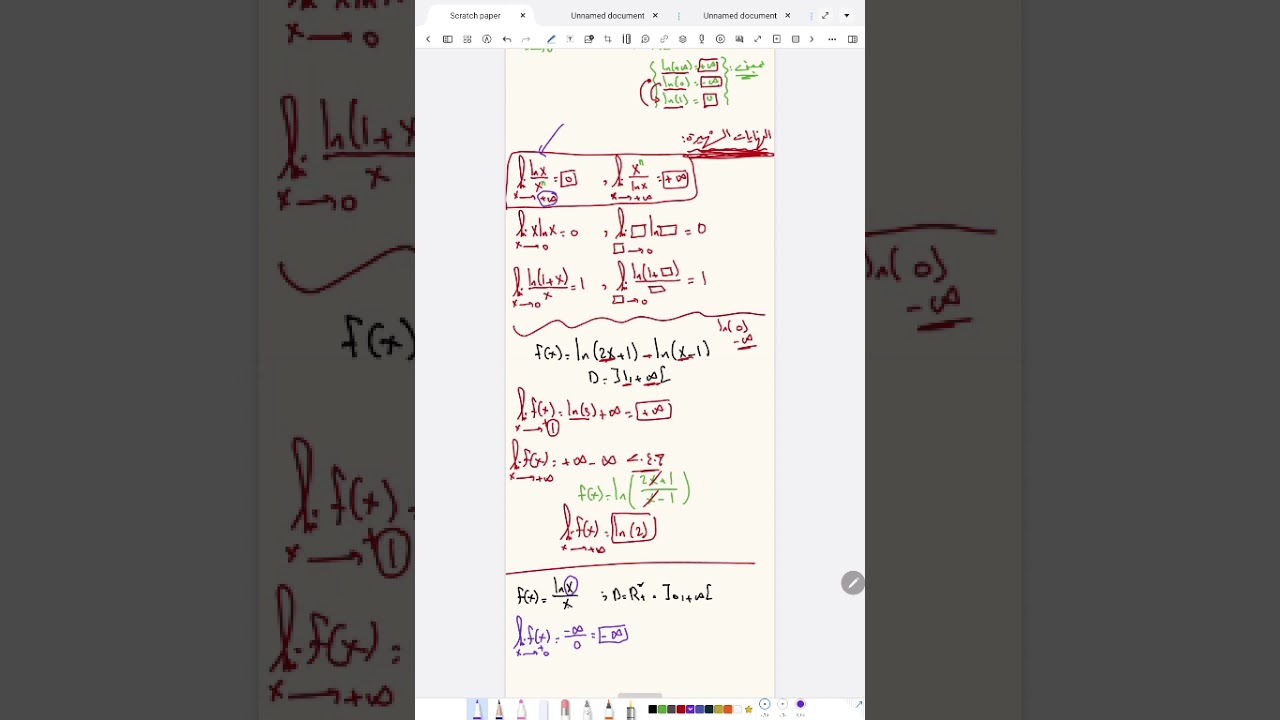 Scratch paper × Unnamed document × Unnamed document ×
ln(+∞) = +∞
ln(0) = -∞
ln(1) = 0
النهايات الشهيرة:
lim x→+∞ lnx/xⁿ = 0 , lim x→+∞ xⁿ/lnx = +∞
lim x→0 xlnx = 0 , lim □→0 □ln□ = 0
lim x→0 ln(1+x)/x = 1 , lim □→0 ln(1+□)/□ = 1
ln(0)
-∞
f(x) = ln(2x+1) - ln(x-1)
D = ]1,+∞[
lim x→⁺1 f(x) = ln(3) + ∞ = +∞
lim x→+∞ f(x) = +∞ - ∞ ح.ع.ت
f(x) = ln(2x+1/x-1)
lim x→+∞ f(x) = ln(2)
f(x) = lnx/x ; D = R*₊ = ]0,+∞[
lim x→⁺0 f(x) = -∞/0 = -∞
x→0
lim x→0 ln(1+x)/x
f(x)
lim x→⁺1 f(x)
lim x→+∞ f(x) =
ln(0)
-∞